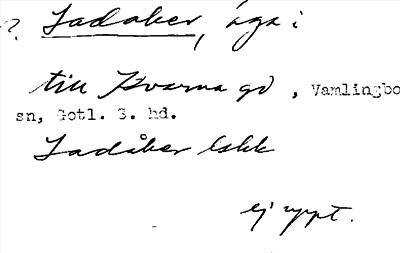 ? Ladåker, äga i
till Kvarna gd, Vamlingbo
sn, Gotl. S. hd.
Ladåker lskk
ej uppt.